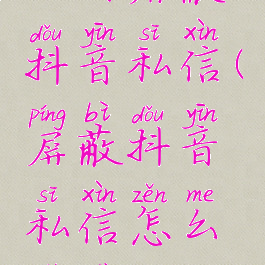 dǒu yīn sī xìn
抖音私信(
píng bì dǒu yīn
屏蔽抖音
sī xìn zěn me
私信怎么